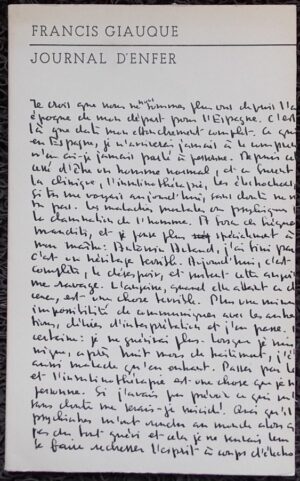 FRANCIS GIAUQUE
JOURNAL D'ENFER
Je crois que nous ne nous sommes plus vus depuis l'a
époque de mon départ pour l'Espagne. C'est
là que date mon effondrement complet. Ce qu
en Espagne, je n'arriverai jamais à le
n'en ai-je jamais parlé à personne. Depuis ce
cessé d'être un homme normal, et ce furent
la clinique, l'insulinothérapie, les électrochocs
Si tu me voyais aujourd'hui, sans doute ne
pas. les maladies mentales ou physiques
la damnation de l'homme. A force de
maudits, et je pense plus spécialement à
mon maître: Antonin Artaud, j'ai fini par
c'est un héritage terrible. Aujourd'hui, c'est
complète, le désespoir, et surtout cette
me ravage. L'angoisse, quand elle atteint à
est une chose terrible. Plus une
impossibilité de communiquer avec les autres
d'idées d'interprétation et j'en passe.
certain: je ne guérirai plus. Lorsque je
après huit mois de traitement, j'
aussi malade qu'en entrant. Passer par le
et l'insulinothérapie est une chose que je
personne. Si j'avais pu prévoir ce qui
sans doute me serais-je suicidé. Ainsi qu'il
psychiatres m'ont rendu au monde alors q
pas du tout guéri et cela je ne
faire redresser l'esprit à coups d'électro